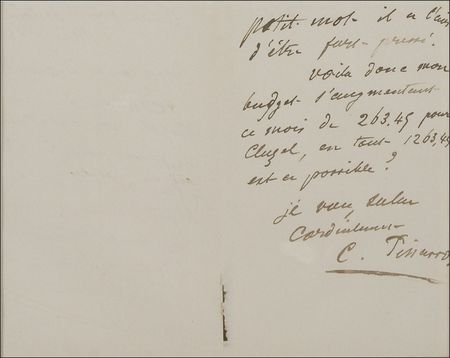 petit mot il a l'air
d'être fort pressé.
voila donc mon
budget s'augmentant
ce mois de 263,45 pour
Cluzel, en tout 1263,45
est ce possible?
je vous salue
Cordialement
C. Pissarro